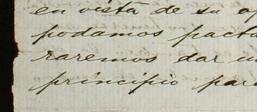 en vista de su
podamos
raremos dar
principio